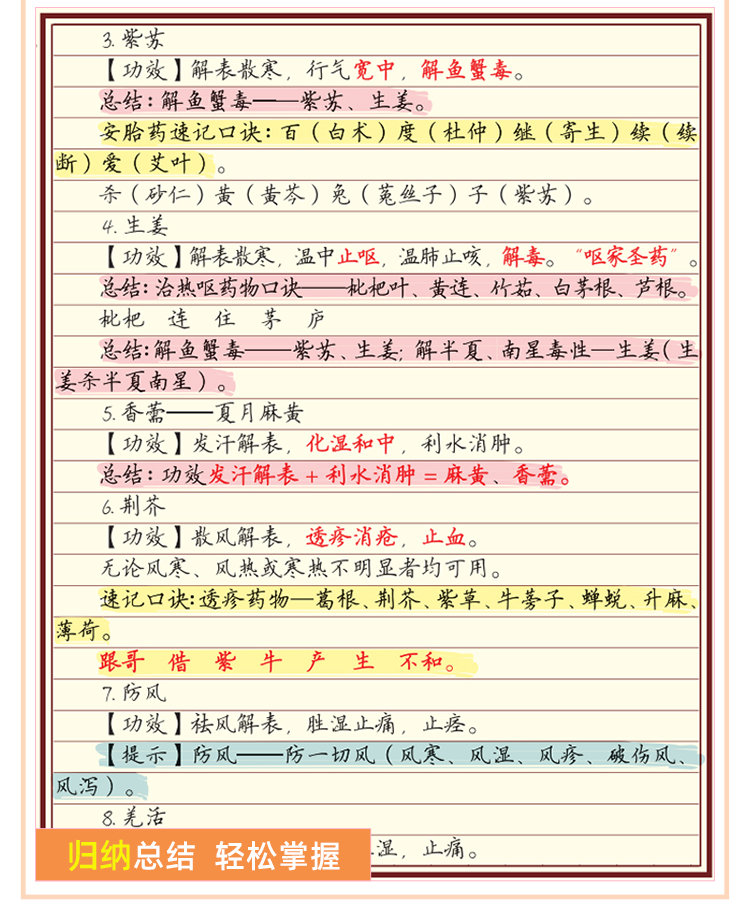 3. 紫苏
【功效】解表散寒，行气宽中，解鱼蟹毒。
总结：解鱼蟹毒——紫苏、生姜。
安胎药速记口诀：百（白术）度（杜仲）继（寄生）续（续
断）爱（艾叶）。
杀（砂仁）黄（黄芩）兔（菟丝子）子（紫苏）。
4. 生姜
【功效】解表散寒，温中止呕，温肺止咳，解毒。“呕家圣药”。
总结：治热呕药物口诀——枇杷叶、黄连、竹茹、白茅根、芦根。
枇杷 连 住 茅 庐
总结：解鱼蟹毒——紫苏、生姜；解半夏、南星毒性—生姜（生
姜杀半夏南星）。
5. 香薷——夏月麻黄
【功效】发汗解表，化湿和中，利水消肿。
总结：功效发汗解表+利水消肿=麻黄、香薷。
6. 荆芥
【功效】散风解表，透疹消疮，止血。
无论风寒、风热或寒热不明显者均可用。
速记口诀：透疹药物—葛根、荆芥、紫草、牛蒡子、蝉蜕、升麻、
薄荷。
跟哥 借 紫 牛 产 生 不和。
7. 防风
【功效】祛风解表，胜湿止痛，止痉。
【提示】防风——防一切风（风寒、风湿、风疹、破伤风、
风泻）。
8. 羌活
湿，止痛。
归纳总结 轻松掌握